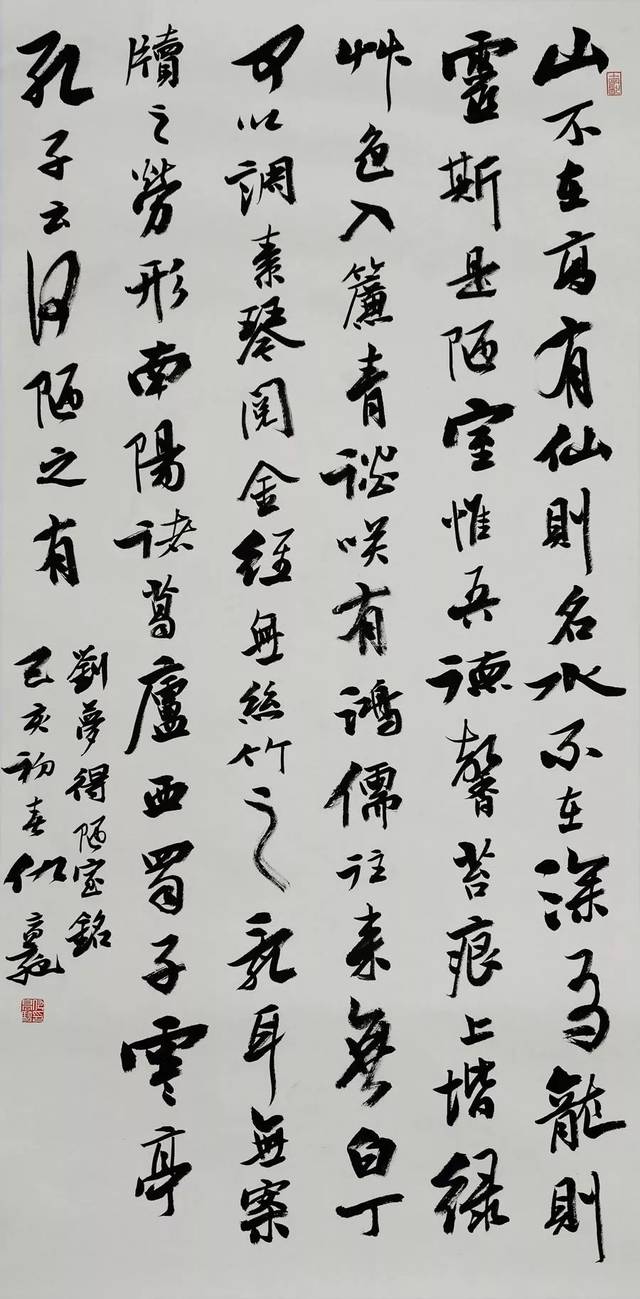 山不在高有仙則名水不在深有龍則
靈斯是陋室惟吾德馨苔痕上堦緑
艸色入簾青談咲有鴻儒往来無白丁
可以調素琴閲金經無絲竹之亂耳無案
牘之勞形南陽诸葛廬西蜀子雲亭
孔子云何陋之有
劉夢得陋室銘
己亥初春仇高馳